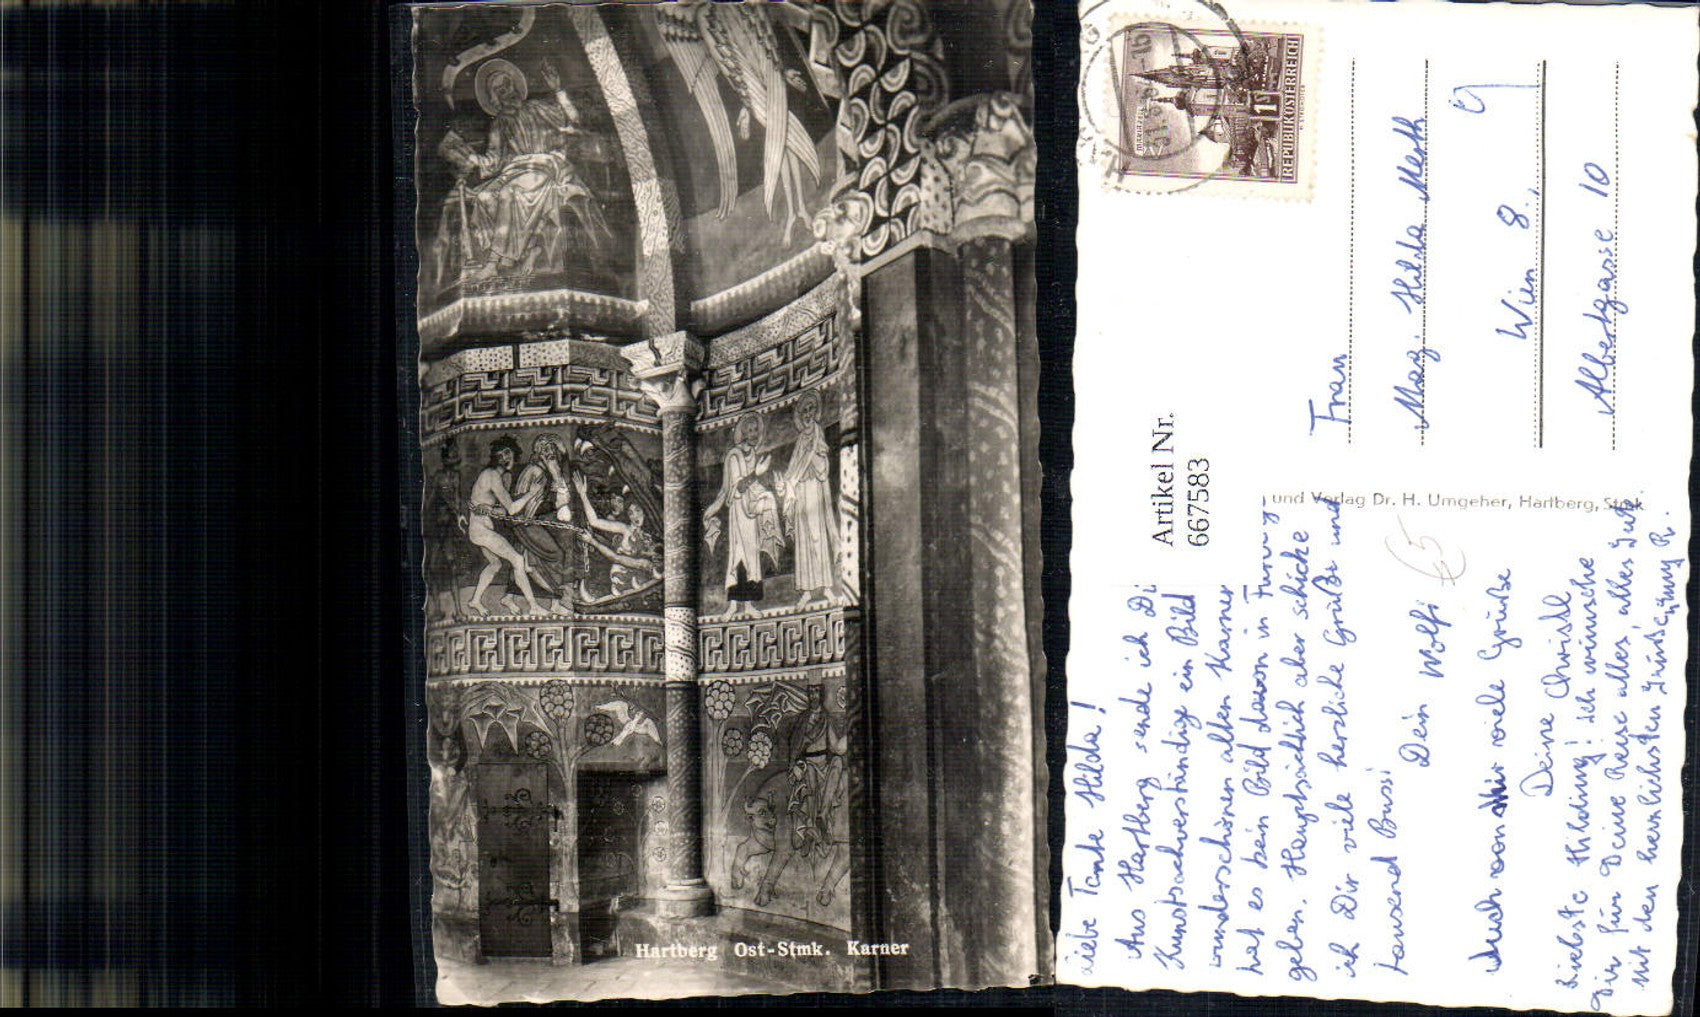 Hartberg Ost-Stmk. Karner
REPUBLIK ÖSTERREICH
MARIAZELL
1 S
Artikel Nr.
667583
und Verlag Dr. H. Umgeher, Hartberg, Stmk.
Frau
Mag. Hilda
Wien 8.,
Albertgasse 10
Liebe Tante Hilda!
Aus Hartberg sende ich Di
Kunstsachverständige ein Bild
wunderschönen alten Karner
hat es kein Bild davon in
geben. Hauptsächlich aber schicke
ich Dir viele herzliche Grüße und
tausend Bussi
Dein Wolfi
Auch von mir viele Grüße
Deine Christl
Liebste Hildung! ich wünsche
Dir für Deine Reise alles, alles Gute
mit den herzlichsten R.
65